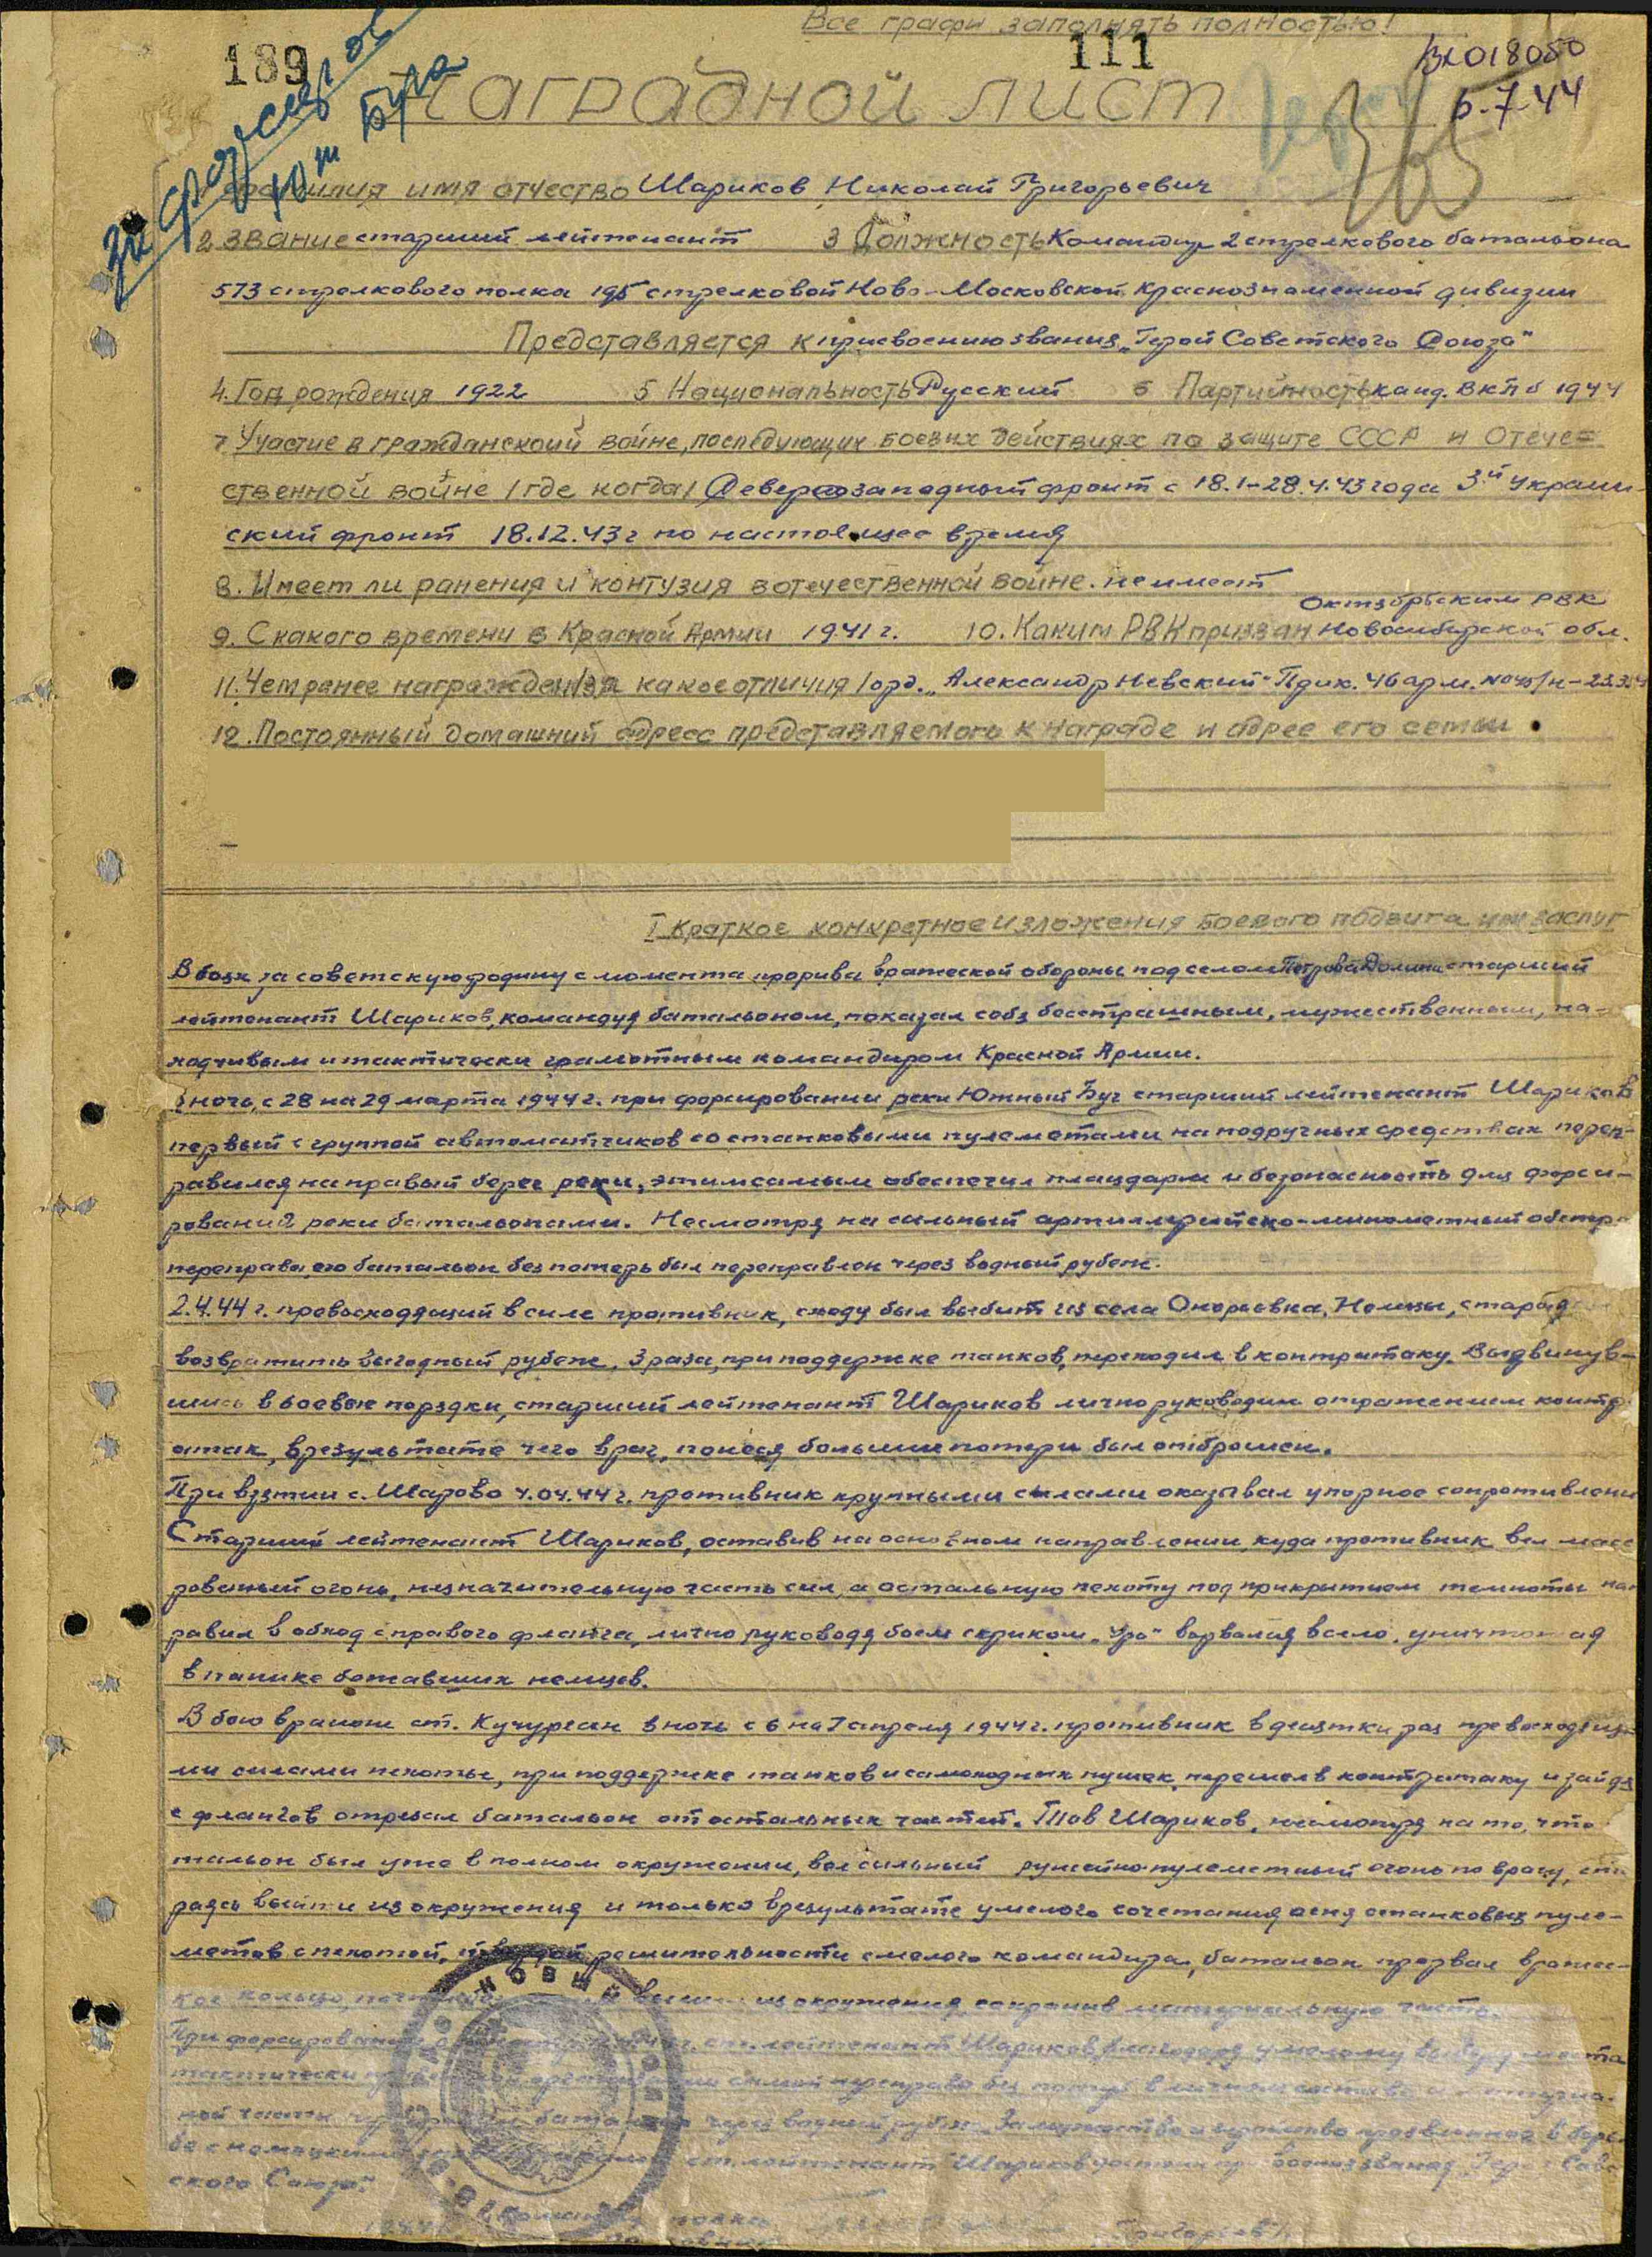 Все графи заполнять полностью!
189
111
Вх 018050
6.7.44
за форсиров
ю т Буга
Наградной лист
Герой
фамилия имя отчество Шариков Николай Григорьевич
2 Звание старший лейтенант 3 Должность Командир 2 стрелкового батальона
573 стрелкового полка 195 стрелковой Ново-Московской Краснознаменной дивизии
Представляется к присвоению звания „Герой Советского Союза"
4. Год рождения 1922 5 Национальность Русский 6 Партийность канд. ВКПб 1944
7 Участие в гражданской войне, последующих боевых действиях по защите СССР и Отече=
ственной войне /где когда/ Северозападный фронт с 18.1-28.4.43 года 3й Украин-
ский фронт 18.12.43 г по настоящее время
8. Имеет ли ранения и контузия в отечественной войне. не имеет
Октябрьским РВК
9. С какого времени в Красной Армии 1941 г. 10. Каким РВК призван Новосибирской обл.
11. Чем ранее награжден /за какое отличия/ орд. „Александр Невский" Прик. 46 арм.
12. Постоянный домашний адресс представляемого к награде и адрес его семьи
I Краткое конкретное изложения боевого подвига или заслуг
В боях за советскую родину с момента прорыва вражеской обороны под селом Петрово Долина старший
лейтенант Шариков, командуя батальоном, показал себя бесстрашным, мужественным, на-
ходчивым и тактически грамотным командиром Красной Армии.
В ночь с 28 на 29 марта 1944 г. при форсировании реки Южный Буг старший лейтенант Шариков
первый с группой автоматчиков со станковыми пулеметами на подручных средствах переп-
равился на правый берег реки, этим самым обеспечил плацдарм и безопасность для форси-
рований реки батальонами. Несмотря на сильный артиллерийско-минометный обстре
переправы, его батальон без потерь был переправлен через водный рубеж.
2.4.44 г. превосходящий в силе противник, сходу был выбит из села Онорьевка. Немцы, стараяс
возвратить выгодный рубеж, 3 раза, при поддержке танков, переходил в контратаку. Выдвинув-
шись в боевые порядки, старший лейтенант Шариков лично руководил отражением контр
атак, в результате чего враг, понеся большие потери был отброшен.
При взятии с. Шарово 4.04.44 г. противник крупными силами оказывал упорное сопротивлени
Старший лейтенант Шариков, оставив на основном направлении, куда противник вел масс
рованный огонь, незначительную часть сил, а остальную пехоту под прикрытием темноты нап
равил в обход с правого фланга, лично руководя боем с криком „Ура" ворвался в село, уничтожая
в панике бежавших немцев.
В бою в районе ст. Кучурган в ночь с 6 на 7 апреля 1944 г. противник в десятки раз превосходящи-
ми силами пехоты, при поддержке танков и самоходных пушек, перешел в контратаку и зайдя
с флангов отрезал батальон от остальных частей. Тов Шариков, несмотря на то, что
тальон был уже в полном окружении, вел сильный ружейно-пулеметный огонь по врагу, ста
раясь выйти из окружения и только в результате умелого сочетания огня станковых пуле-
метов с пехотой, твердой решительности смелого командира, батальон прорвал вражес-
кое кольцо, вышел из окружения, сохранив материальную часть.
При форсировании ст. лейтенант Шариков, благодаря умелому выбору места
тактически самой переправы без потерь в личном составе и материаль-
ной части батальон через водный рубеж. За мужество и геройство проявленное в борь
бе с немецкими ст. лейтенант Шариков достоин присвоения звания „Герой Совет-
ского Союза".
Командир полка
Григорьев/